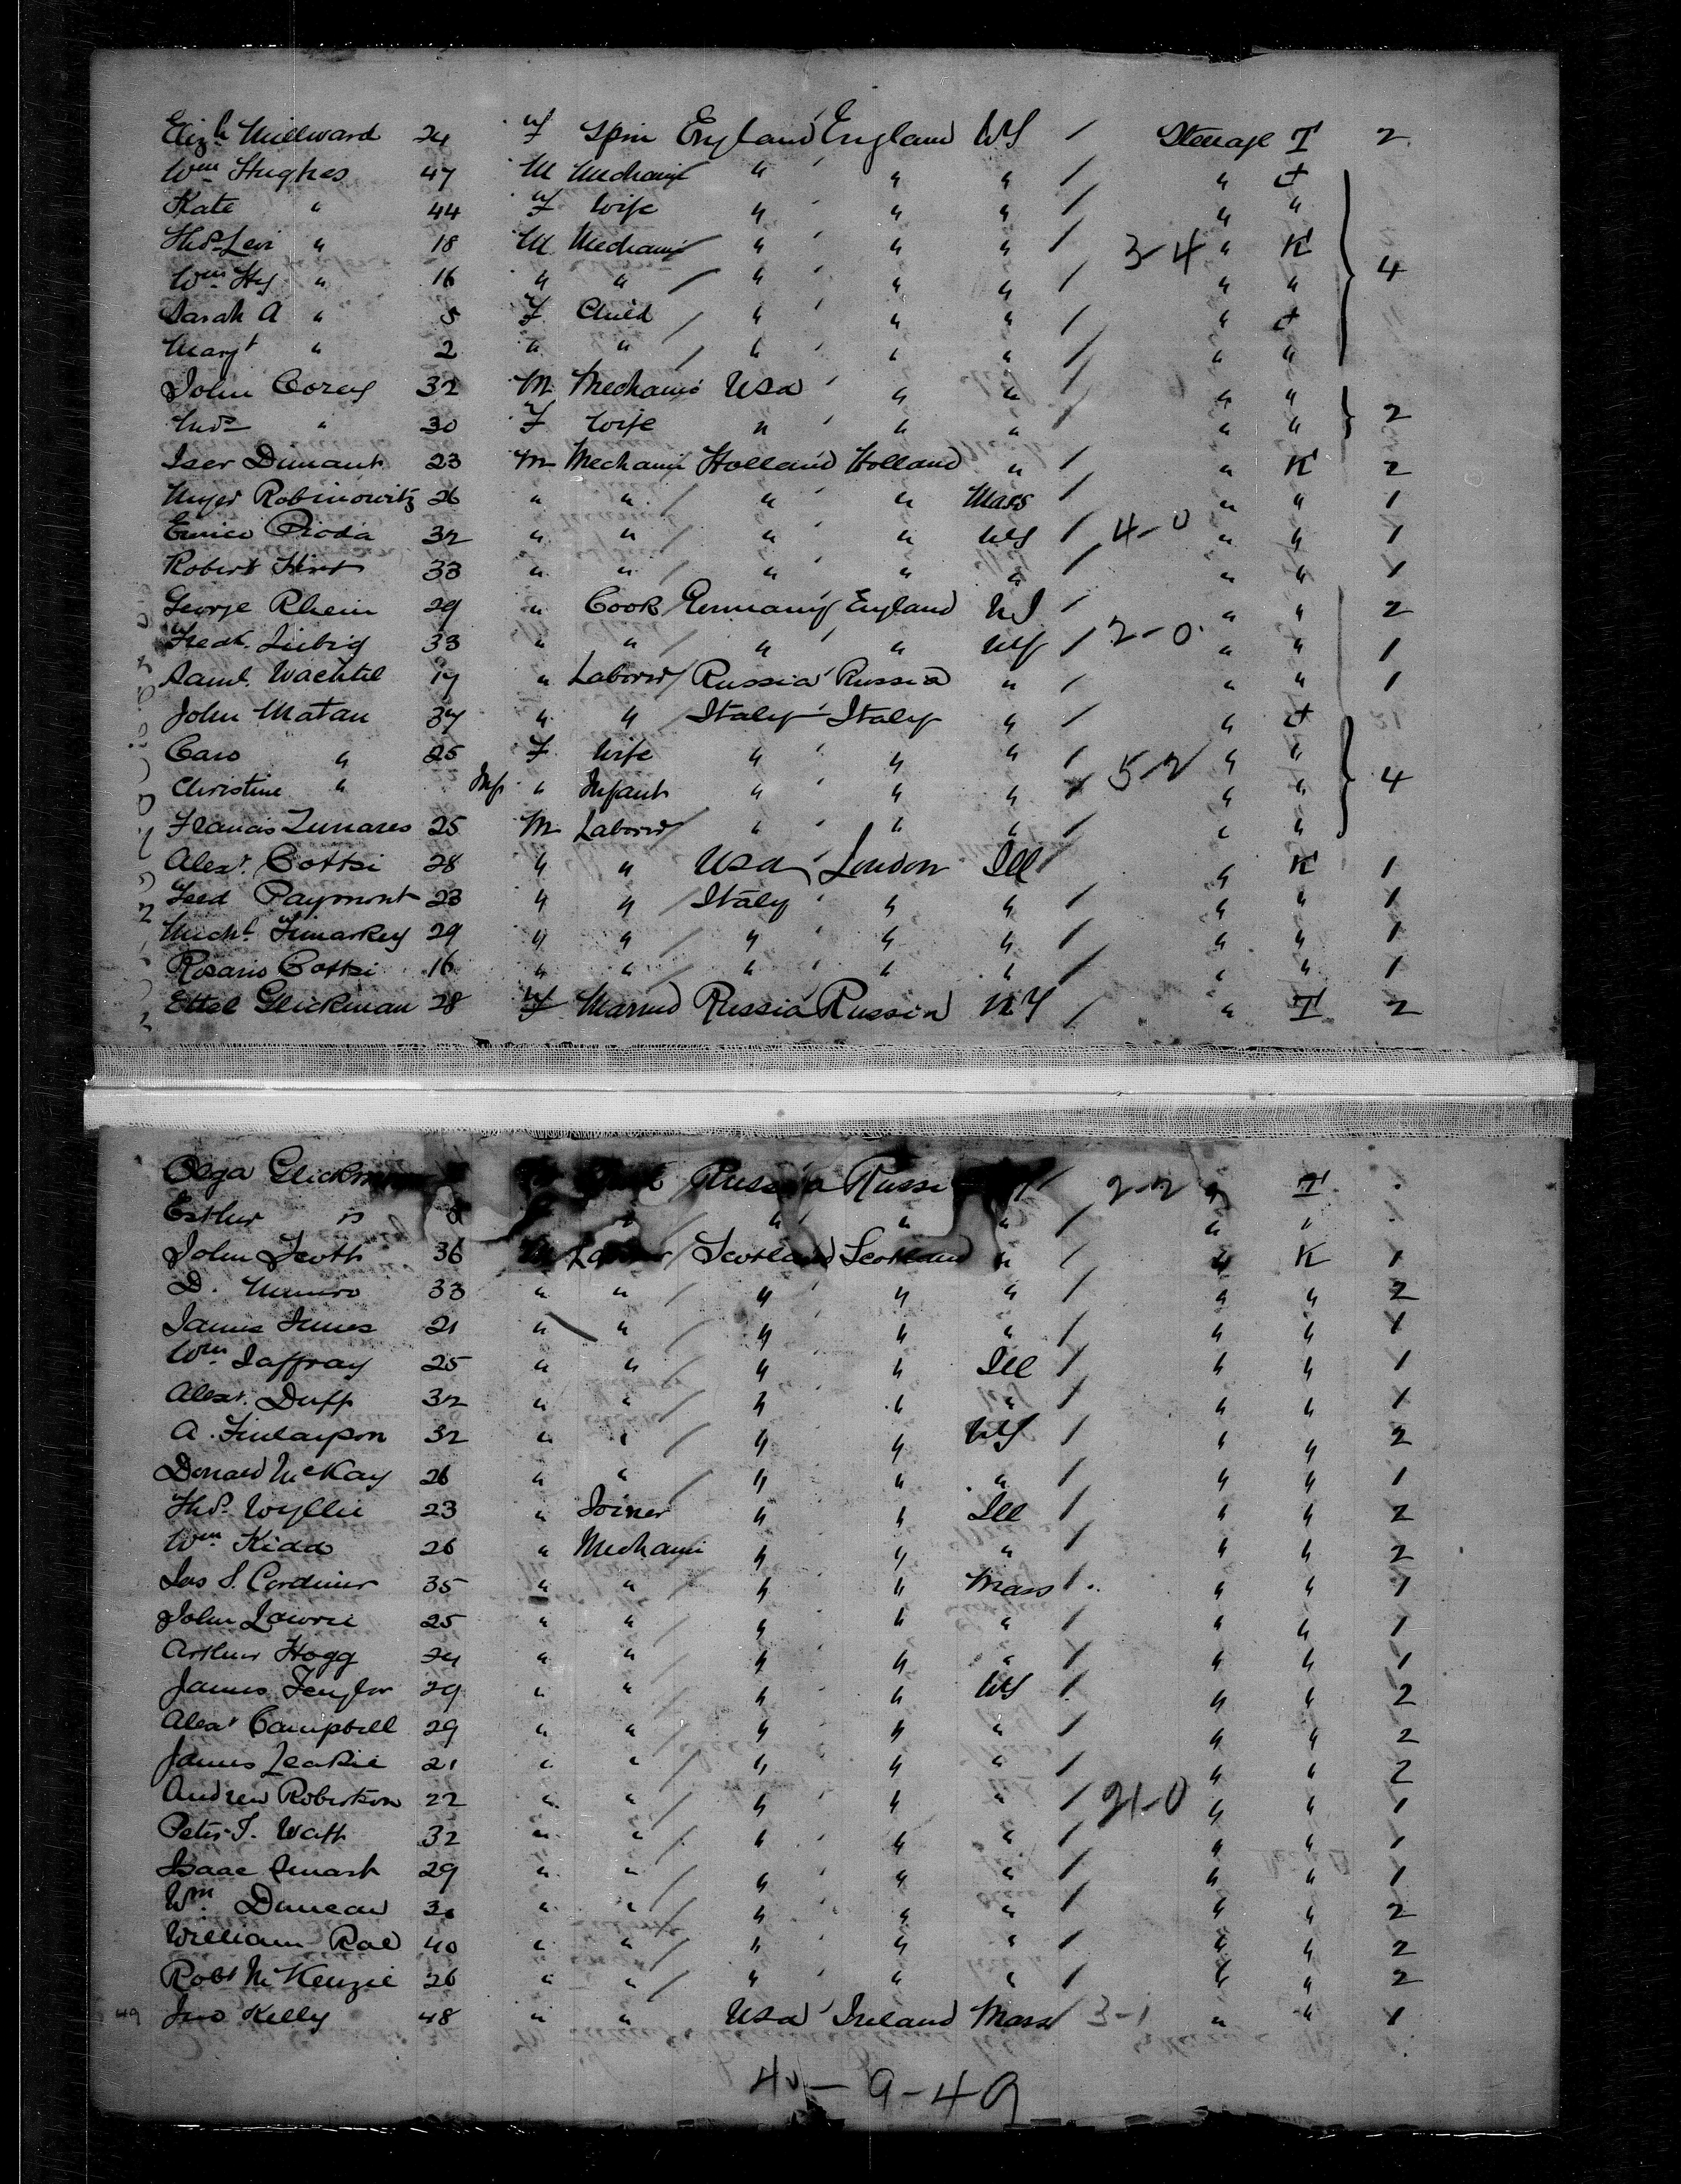 Elizh Millward 24 F Spin England England NY / Steerage T 2
Wm Hughes 47 M Mechanic " " " / " +
Kate " 44 F Wife " " " / " "
Thos Levi " 18 M Mechanic " " " / 3-4 " K
Wm Hy " 16 " " / " " " / " " 4
Sarah A " 5 F Child / " " " / " +
Margt " 2 " " / " " " / " "
John Corey 32 M Mechanic USA " " / " "
Mrs " 30 F Wife " " " / " " 2
Iser Dunant 23 M Mechanic Holland Holland " / " K 2
Meyer Robinowitz 26 " " / " " Mass / " " 1
Enrico Pioda 32 " " / " " NY / 4-0 " " 1
Robert Hirt 33 " " / " " " / " " 1
George Rhein 29 " Cook Germany England NJ / " " 2
Fredk. Liebig 33 " " / " " NY / 2-0 " " 1
Saml. Wachtel 19 " Laborer / Russia Russia " / " " 1
John Matan 37 " " Italy Italy " / " +
Caro " 25 F Wife " " " / 5-2 " "
Christine " Inf " Infant " " " / " " 4
Francis 25 M Laborer / " " " / " "
Alexr. Cottsi 28 " " USA London Ill / " K 1
Fred Paymont 23 " " / Italy " " / " " 1
Michl. 29 " " / " " " / " " 1
Rosario Cottsi 16 " " / " " " / " " 1
Ettel Glickman 28 F Married Russia Russia NY / " T 2
Olga Russia / 2-2 " T
Esther " " " " " / " "
John Scott 36 M / Scotland Scotland " / " K 1
D. Munro 33 " " / " " " / " " 2
James Innes 21 " " / " " " / " " 1
Wm Jaffray 25 " " / " " Ill / " " 1
Alexr. Duff 32 " " / " " " / " " 1
A. Finlayson 32 " " / " " NY / " " 2
Donald McKay 26 " " / " " " / " " 1
Thos. Wyllie 23 " Joiner " " Ill / " " 2
Wm. Kidd 26 " Mechanic " " " / " " 2
Jas S. Cordiner 35 " " / " " Mass / " " 1
John Lawrie 25 " " / " " " / " " 1
Arthur Hogg 24 " " / " " " / " " 1
James 29 " " / " " NY / " " 2
Alexr Campbell 29 " " / " " " / " " 2
James Leakie 21 " " / " " " / " " 2
Andrew Robertson 22 " " / " " " / 21-0 " " 1
Peter J. Watt 32 " " / " " " / " " 1
Isaac Smart 29 " " / " " " / " " 1
Wm. Duncan " " / " " " / " " 2
William Rae 40 " " / " " " / " " 2
Robt McKenzie 26 " " / " " " / " " 2
49 Jno Kelly 48 " " USA Ireland Mass / 3-1 " " 1
40-9-49